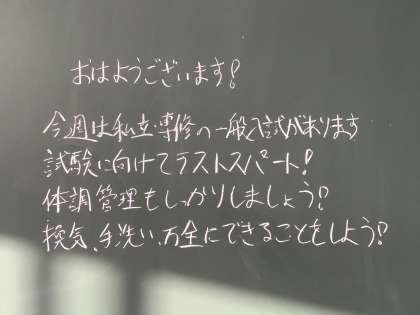 おはようございます!
今週は私立・専修の一般入試があります
試験に向けてラストスパート!
体調管理もしっかりしましょう!
換気、手洗い、万全にできることをしよう!